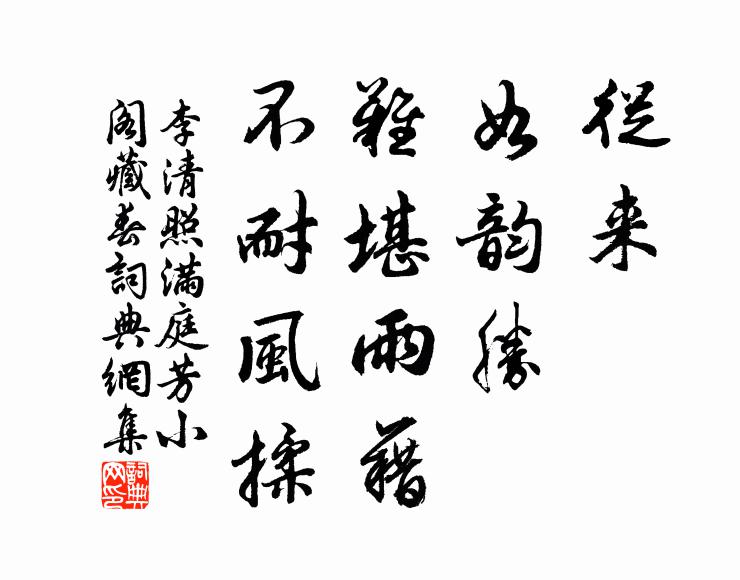 從来
如韵勝
難堪雨藉
不耐風揉
李清照滿庭芳小
阁藏春詞典網集
詞典网印